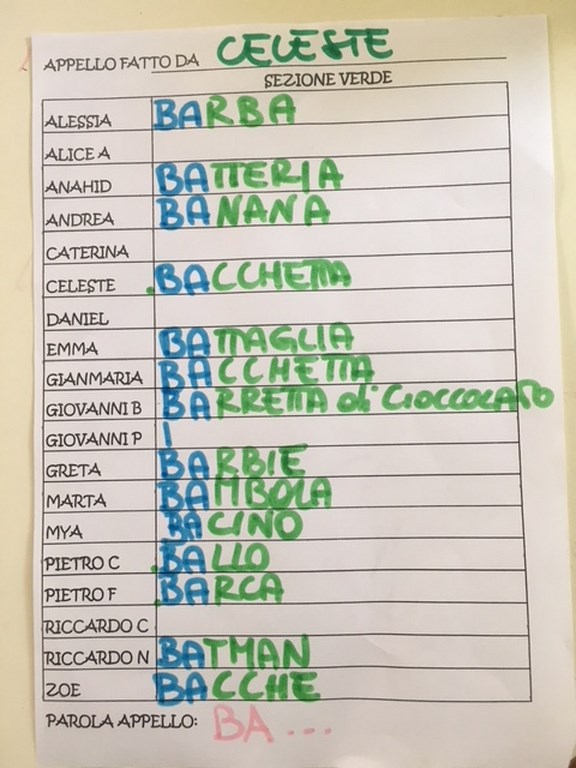 APPELLO FATTO DA CELESTE
SEZIONE VERDE
ALESSIA BARBA
ALICE A
ANAHID BATTERIA
ANDREA BANANA
CATERINA
CELESTE BACCHETTA
DANIEL
EMMA BATTAGLIA
GIANMARIA BACCHETTA
GIOVANNI B BARRETTA di CIOCCOLATO
GIOVANNI P
GRETA BARBIE
MARTA BAMBOLA
MYA BACINO
PIETRO C BALLO
PIETRO F BARCA
RICCARDO C
RICCARDO N BATMAN
ZOE BACCHE
PAROLA APPELLO: BA...